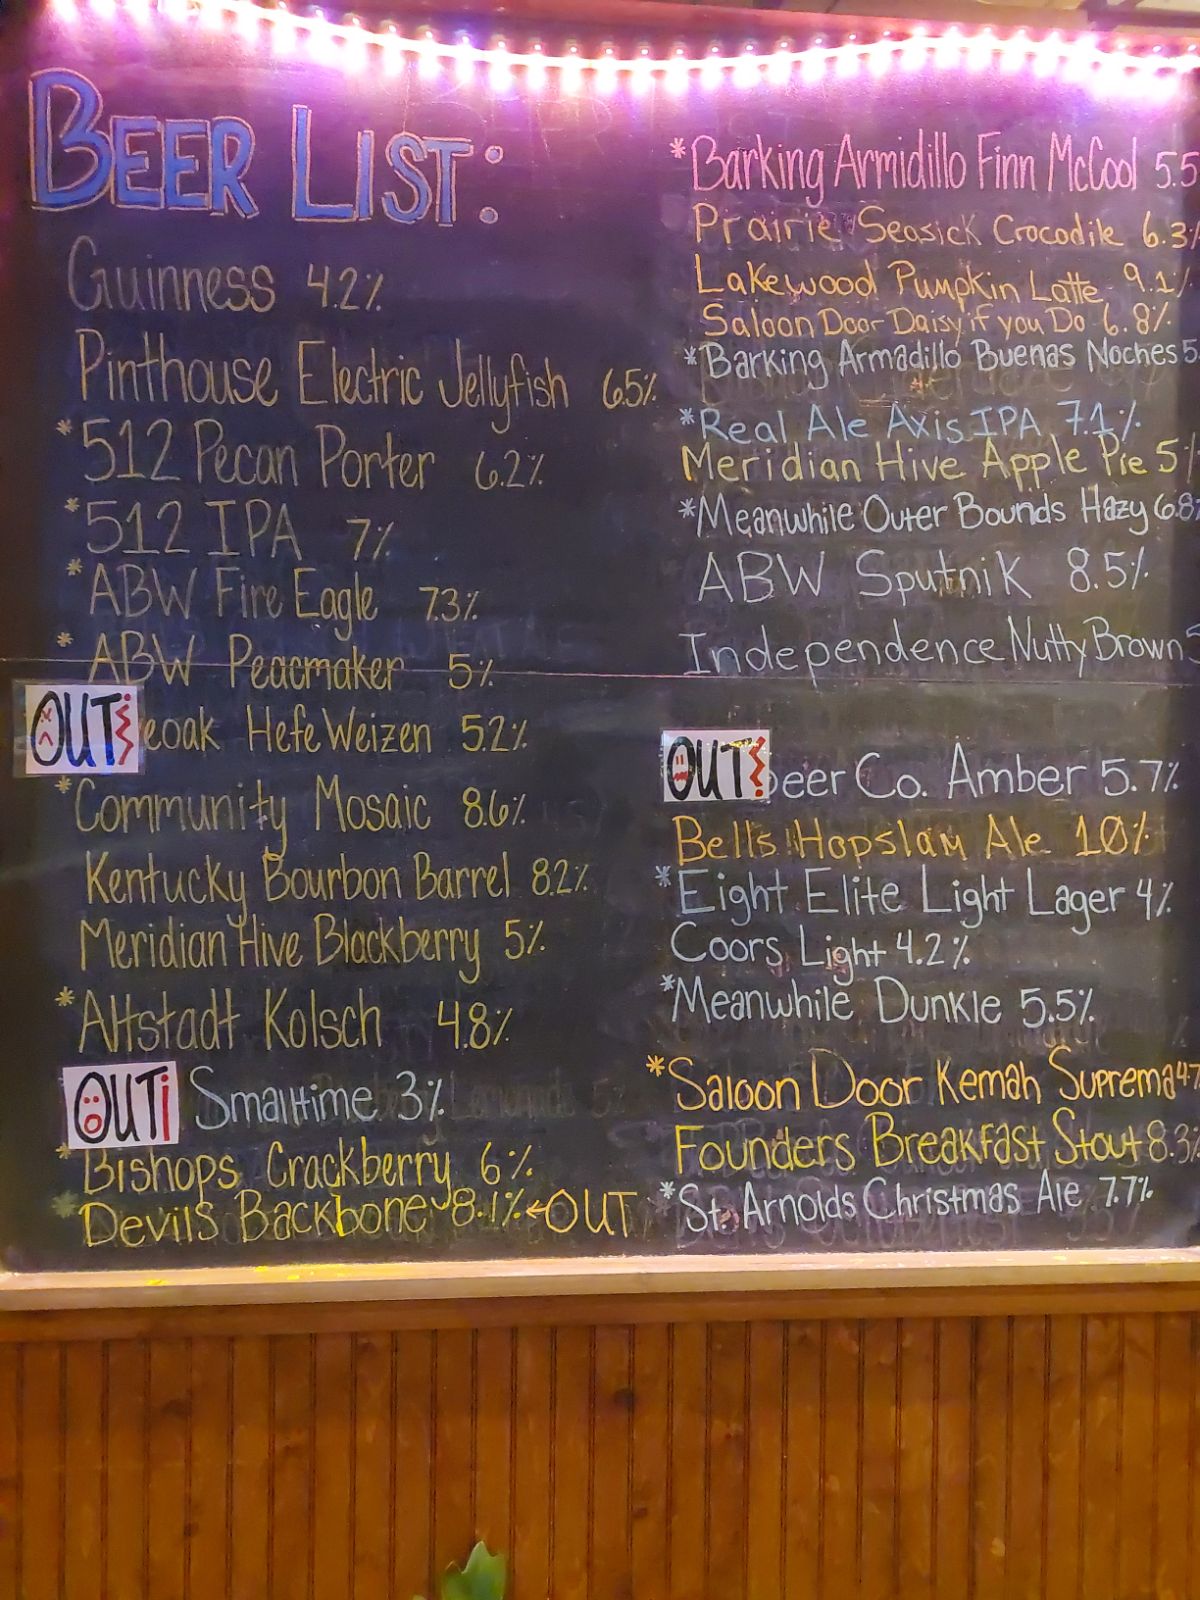 BEER LIST:
Guinness 4.2%
Pinthouse Electric Jellyfish 6.5%
*512 Pecan Porter 6.2%
*512 IPA 7%
*ABW Fire Eagle 7.3%
*ABW Peacmaker 5%
OUT! eoak HefeWeizen 5.2%
*Community Mosaic 8.6%
Kentucky Bourbon Barrel 8.2%
Meridian Hive Blackberry 5%
*Altstadt Kolsch 4.8%
OUT! Smalltime 3%
*Bishops Crackberry 6%
*Devils Backbone 8.1% ←OUT
*Barking Armidillo Finn McCool 5.5
Prairie Seasick Crocodile 6.3%
Lakewood Pumpkin Latte 9.1%
Saloon Door Daisy if you Do 6.8%
*Barking Armadillo Buenas Noches 5
*Real Ale Axis IPA 7.1%
Meridian Hive Apple Pie 5%
*Meanwhile Outer Bounds Hazy 6.8%
ABW Sputnik 8.5%
Independence Nutty Brown
OUT! beer Co. Amber 5.7%
Bells Hopslam Ale 10%
*Eight Elite Light Lager 4%
Coors Light 4.2%
*Meanwhile Dunkle 5.5%
*Saloon Door Kemah Suprema 4.7
Founders Breakfast Stout 8.3%
*St. Arnolds Christmas Ale 7.7%